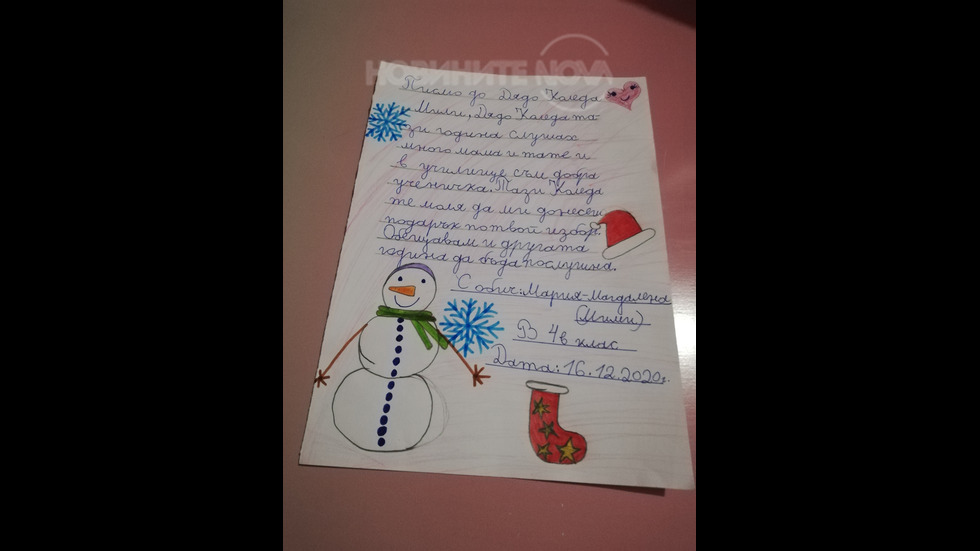 НОВИНИТЕ NOVA
Писмо до Дядо Коледа
Мили, Дядо Коледа та-
зи година слушах
много мама и тате и
в училище съм добра
ученичка. Тази Коледа
те моля да ми донесеш
подарък по твой избор.
Обещавам и другата
година да бъда послушна.
С обич: Мария-Магдалена
(Мими)
В 4в клас
Дата: 16.12.2020г.